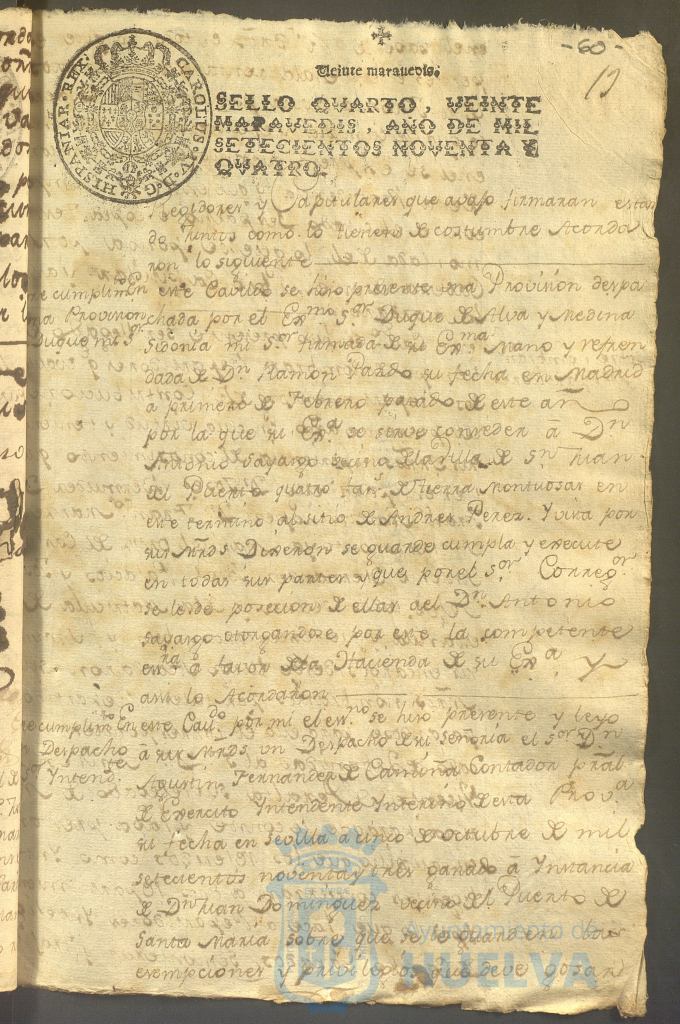 -60-
19
Veinte maravedis.
SELLO QVARTO, VEINTE
MARAVEDIS, AÑO DE MIL
SETECIENTOS NOVENTA Y
QVATRO.
CAROLUS·IV·D·G·HISPANIAR·REX·
Regidores y Capitulares que avajo firmaran estan
do Juntos como lo tienen de costumbre Acorda
ron lo siguiente
en este Cavildo se hizo presente una Provision despa
chada por el Exmo Sor Duque de Alva y Medina
sidonia mi Sor firmada de su Exma Mano y refren
dada de Dn Ramon Pardo su fecha en Madrid
a primero de Febrero pasado de este añ
por la que su Exa se sirve conceder a Dn
Antonio Sayargo vecino de la Villa de Sn Juan
del Puerto quatro fans de tierra Montuosas en
este termino al sitio de Andres Perez. Y vista por
sus Mrds Dixeron se guarde cumpla y execute
en todas sus partes y que por el Sor Corregor
se le dé posecion de ellas del Dn Antonio
sayargo otorgandose por este la competente
esra a favor de la Hacienda de su Exa Y
asi lo Acordaron
se cumplimto
una Provision
Duque mi Sor
En este Cavdo por mi el esno se hizo presente y leyo
a sus Mrds un Despacho de su señoria el Sor Dn
Agustin Fernandez de Camiña Contador pral
de Exercito Intendente Interino de esta Prova
su fecha en Sevilla a cinco de Octubre de mil
setecientos noventa y tres ganado a Instancia
de Dn Juan Dominguez vecino del Puerto de
Santa Maria sobre que se le guarden las
exempciones y privilegios que deve gosar
se cumplimto
Despacho
Sor Yntendte
Ayuntamiento de
HUELVA